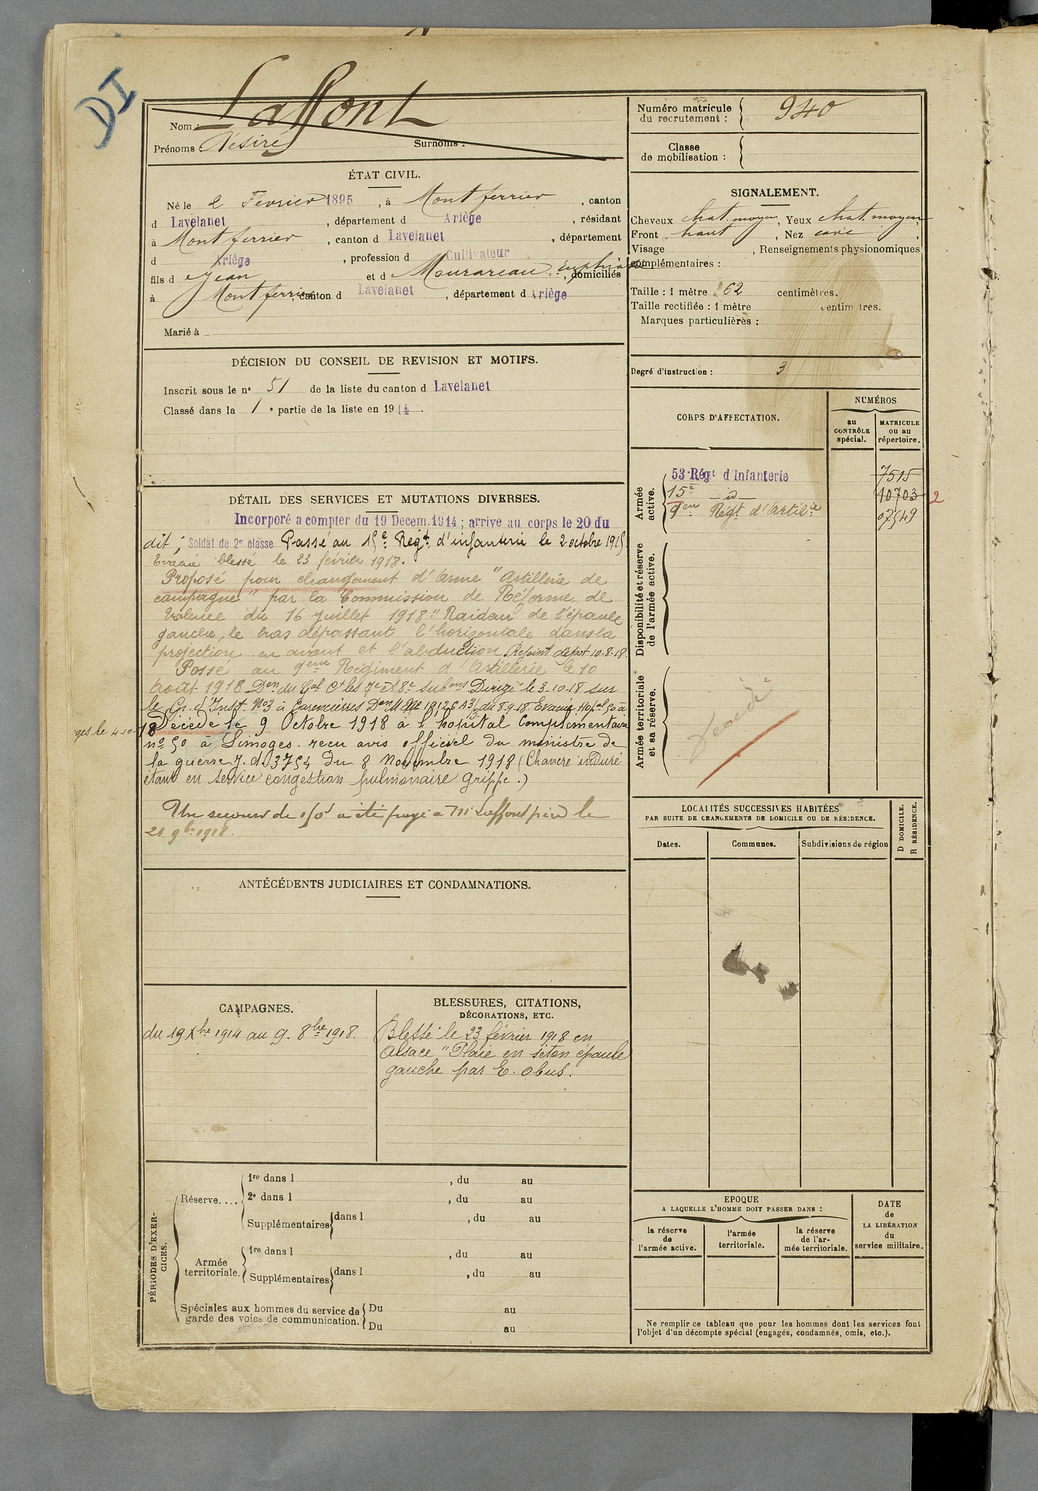 DI
Laffont
Nom :
Prénoms : Désiré Surnoms :
ÉTAT CIVIL.
Né le 2 Fevrier 1895, à Montferrier, canton
d Lavelanet, département d Ariège, résidant
à Montferrier, canton d Lavelanet, département
d Ariège, profession d Cultivateur
fils d Jean et d , domiciliés
à Montferrier canton d Lavelanet, département d Ariège
Marié à
DÉCISION DU CONSEIL DE REVISION ET MOTIFS.
Inscrit sous le n° 51 de la liste du canton d Lavelanet
Classé dans la 1e partie de la liste en 1914.
DÉTAIL DES SERVICES ET MUTATIONS DIVERSES.
Incorporé a compter du 19 Decem. 1914 ; arrive au corps le 20 du
dit, Soldat de 2e classe Passé au 15e Regt d'infanterie le 2 octobre 1915
Evacué blessé le 23 février 1918.
Proposé pour changement d'arme "Artillerie de
campagne" par la Commission de Réforme de
Valence du 16 juillet 1918 "Raideur de l'épaule
gauche, le bras dépassant l'horizontale dans la
projection en avant et l'abduction Rejoint dépôt 10.8.18
Passé au 9eme Régiment d'Artillerie le 10
Août 1918 Don du Gal Ct les 17e et 18e subons Dirigé le 3.10.18 sur
le Cn d'Inst. No3 à Don M. Mle 1912 6/13 du 8.9.18 Evacué Hopal 50 à
ges le 4-10-18 Décédé le 9 Octobre 1918 à l'hopital Complémentaire
no 50 à Limoges. recu avis officiel du ministre de
la guerre J. d. 3754 du 8 Novembre 1918 (Chancre induré
étant en service congestion pulmonaire grippe.)
Un secours de 150f a été payé à Mr Laffont père le
21 9bre 1918.
ANTÉCÉDENTS JUDICIAIRES ET CONDAMNATIONS.
CAMPAGNES.
du 19 Xbre 1914 au 9. 8bre 1918.
BLESSURES, CITATIONS,
DÉCORATIONS, ETC.
Blessé le 23 février 1918 en
Alsace "Plaie en séton épaule
gauche par E. obus.
PÉRIODES D'EXERCICES.
Réserve....
1re dans l , du au
2e dans l , du au
Supplémentaires dans l , du au
Armée territoriale.
1re dans l , du au
Supplémentaires dans l , du au
Spéciales aux hommes du service de
garde des voies de communication.
Du au
Du au
Numéro matricule
du recrutement : 940
Classe
de mobilisation :
SIGNALEMENT.
Cheveux chat. moyen, Yeux chat. moyen
Front haut, Nez cave,
Visage , Renseignements physionomiques
complémentaires :
Taille : 1 mètre 62 centimètres.
Taille rectifiée : 1 mètre centimètres.
Marques particulières :
Degré d'instruction : 3
CORPS D'AFFECTATION.
NUMÉROS
au
CONTRÔLE
spécial.
MATRICULE
ou au
répertoire.
Armée
active.
53 Régt d Infanterie 7515
15e _id_ 10703 2
9eme Regt d'Artilie 07549
Disponibilité et réserve
de l'armée active.
Armée territoriale
et sa réserve.
décédé
LOCALITÉS SUCCESSIVES HABITÉES
PAR SUITE DE CHANGEMENTS DE DOMICILE OU DE RÉSIDENCE.
Dates.
Communes.
Subdivisions de région
D DOMICILE.
R RÉSIDENCE.
EPOQUE
A LAQUELLE L'HOMME DOIT PASSER DANS :
la réserve
de
l'armée active.
l'armée
territoriale.
la réserve
de l'ar-
mée territoriale.
DATE
de
LA LIBÉRATION
du
service militaire.
Ne remplir ce tableau que pour les hommes dont les services font
l'objet d'un décompte spécial (engagés, condamnés, omis, etc.).